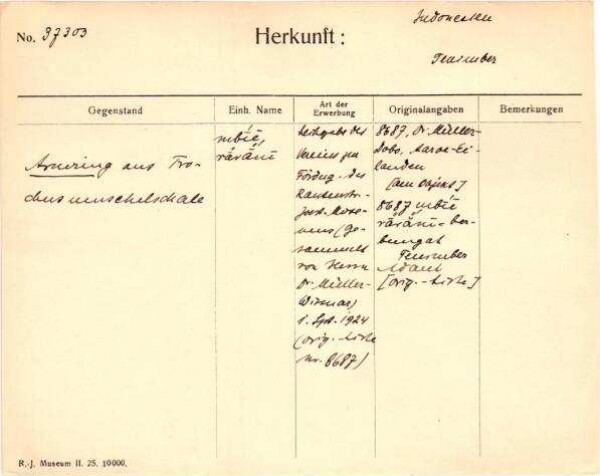 Indonesien
No. 37303
Herkunft:
Tenimber
Gegenstand
Einh. Name
Art der Erwerbung
Originalangaben
Bemerkungen
Armring aus Tro-
chusmuschelschale
mbíē,
rāràni
Leihgabe des
Vereins zu
Förderg. des
Rautenstr.-
Joest-Mus-
eums (ge-
sammelt
von Herrn
Dr. Müller-
Wismar)
1. Sept. 1924
(orig.-Liste
nr. 8687)
8687, Dr. Müller-
Dobo, Aaroe-Ei-
landen
[am Objekt]
8687 mbíē
rāràni
Tenimber
[orig.-Liste]
R.-J. Museum II. 25. 10000.